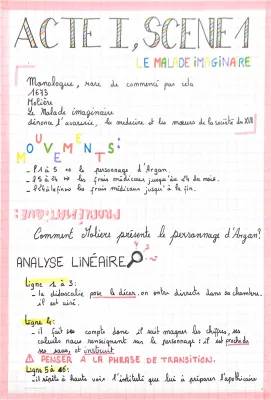 ACTE I, SCENE 1
LE MALADE IMAGINAIRE
Monologue, rare de commencé par cela
1673
Molière
Le Malade imaginaire
dénonce l'avarisie, la medecine et les mœurs de la société du XVII
MOUVEMENTS:
- l 1 à 5 => le personnage d'Argan.
- l 5 à 24 => les frais médicaux jusqu'à la fin du mois.
- l 24 à la fin => les frais médicaux jusqu'à la fin.
PROBLÉMATIQUE:
Comment Molière présente le personnage d'Argan?
ANALYSE LINÉAIRE
Ligne 1 à 3:
- la didascalie pose le décor. on entre directe dans sa chambre.
il est aisé.
Ligne 4:
- il fait ses compte donc il sait magner les chiffres, ses
calculs nous renseignent sur le personnage: il est proche de
ses sous, et instruit.
⚠ PENSER À LA PHRASE DE TRANSITION.
Ligne 5 à 16:
- il récite à haute voix l'intitulé que lui à préparer l'apothicaire